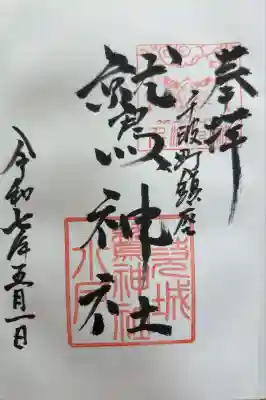 奉拝
千波町鎮座
鷲神社
茨城
鷲神社
水戸
令和七年五月一日